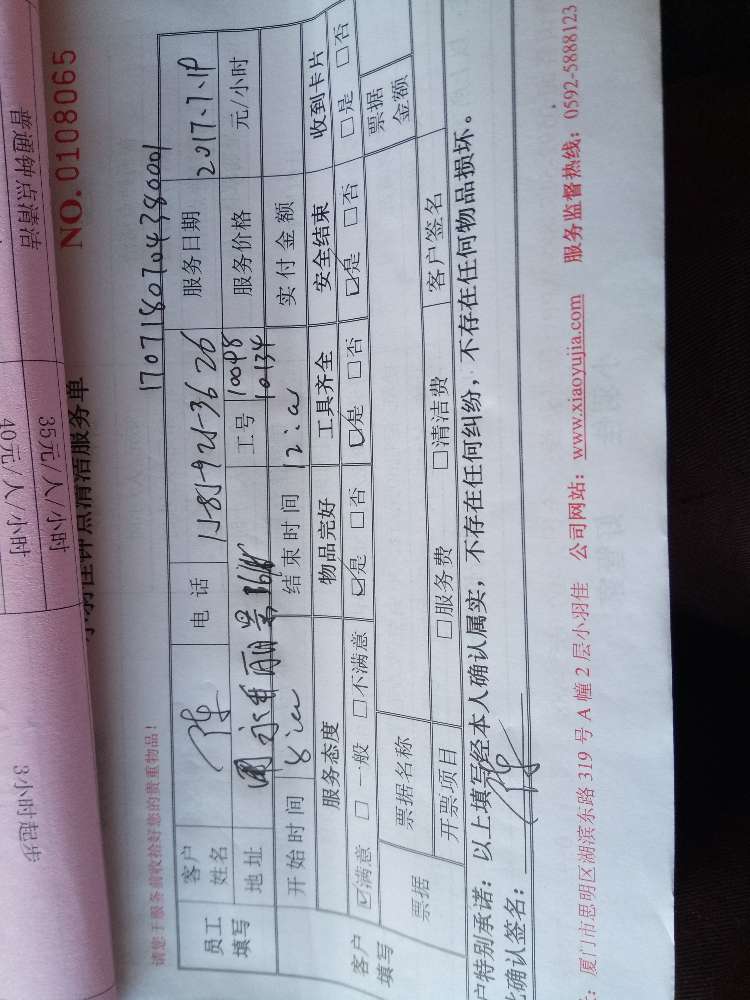 普通钟点清洁
35元/人/小时
40元/人/小时
3小时起步
NO.0108065
钟点清洁服务单
请您于服务前收拾好您的贵重物品！
1707180704380001
员工填写
客户姓名 陈 电话 服务日期 2017.7.18
地址 工号 10098 10134 服务价格 元/小时
开始时间 8:00 结束时间 12:00 实付金额
客户填写
服务态度 物品完好 工具齐全 安全结束 收到卡片
☑满意 □一般 □不满意 ☑是 □否 ☑是 □否 ☑是 □否 □是 □否
票据
票据名称 票据金额
开票项目 □服务费 □清洁费 客户签名
户特别承诺：以上填写经本人确认属实，不存在任何纠纷，不存在任何物品损坏。
确认签名：陈
厦门市思明区湖滨东路 319 号 A 幢 2 层小羽佳 公司网站：www.xiaoyujia.com 服务监督热线：0592-5888123